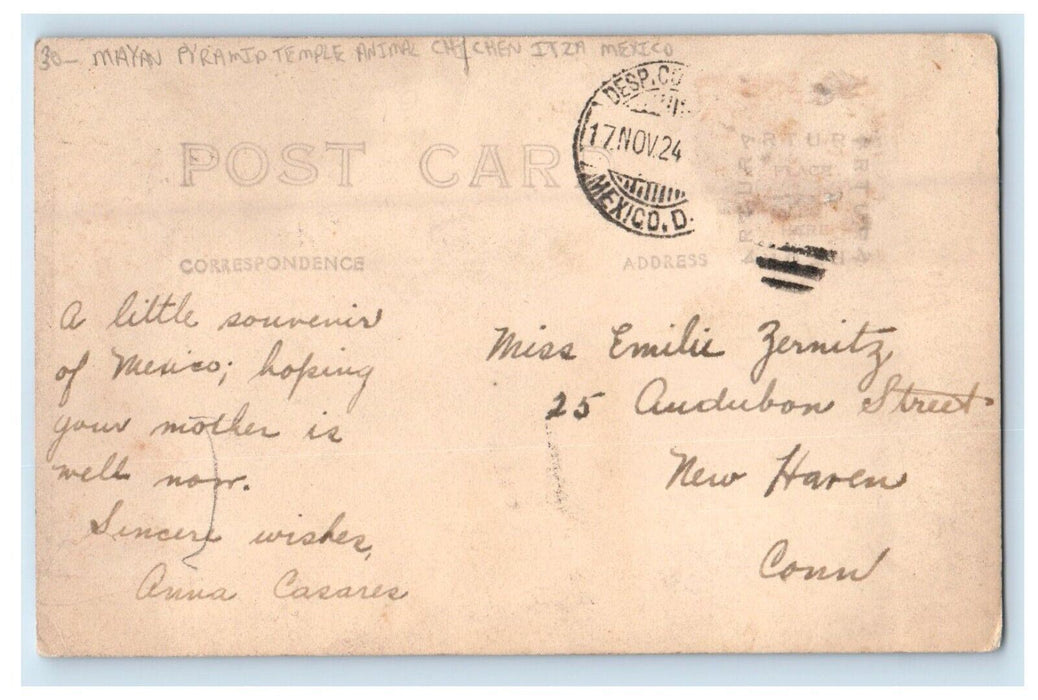 30- MAYAN PYRAMID TEMPLE ANIMAL CHICHEN ITZA MEXICO
DESP. CO
17 NOV. 24
MEXICO, D.
POST CARD
ARTURA
ARTURA
PLACE
HERE
CORRESPONDENCE
ADDRESS
A little souvenir
of Mexico; hoping
your mother is
well now.
Sincere wishes,
Anna Casares
Miss Emilie Zernitz
25 Audubon Street
New Haven
Conn